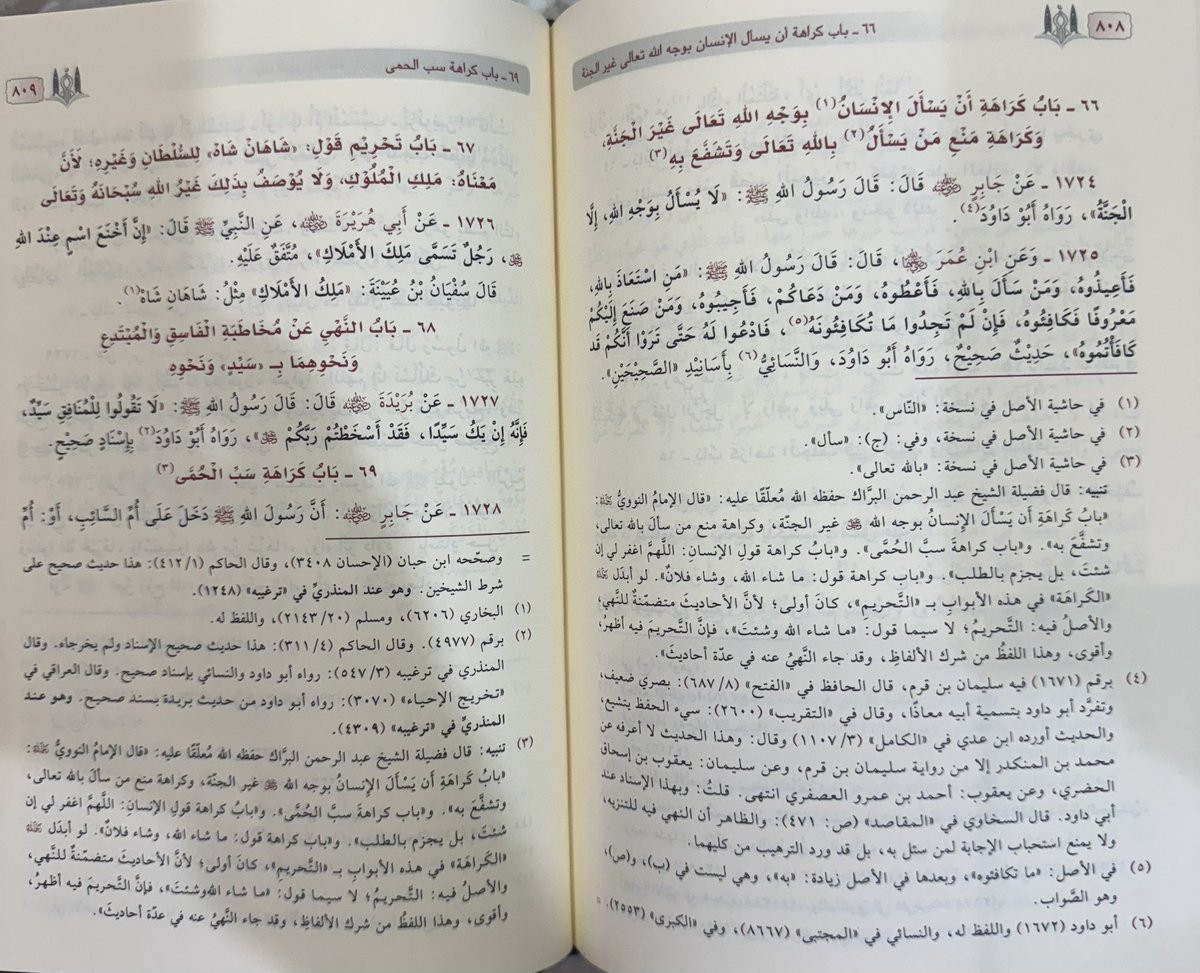 ٨٠٨
٦٦ ـ باب كراهة أن يسأل الإنسان بوجه الله تعالى غير الجنة
٦٦ ـ بَابُ كَرَاهَةِ أَنْ يَسْأَلَ الإِنْسَانُ(١) بِوَجْهِ اللهِ تَعَالَى غَيْرَ الْجَنَّةِ،
وَكَرَاهَةِ مَنْعِ مَنْ يَسْأَلُ(٢) بِاللهِ تَعَالَى وَتَشَفَّعَ بِهِ(٣)
١٧٢٤ ـ عَنْ جَابِرٍ رضي الله عنه قَالَ: قَالَ رَسُولُ اللهِ ﷺ: «لَا يُسْأَلُ بِوَجْهِ اللهِ، إِلَّا
الْجَنَّةُ»، رَوَاهُ أَبُو دَاوُدَ(٤).
١٧٢٥ ـ وَعَنِ ابْنِ عُمَرَ رضي الله عنهما، قَالَ: قَالَ رَسُولُ اللهِ ﷺ: «مَنِ اسْتَعَاذَ بِاللهِ،
فَأَعِيذُوهُ، وَمَنْ سَأَلَ بِاللهِ، فَأَعْطُوهُ، وَمَنْ دَعَاكُمْ، فَأَجِيبُوهُ، وَمَنْ صَنَعَ إِلَيْكُمْ
مَعْرُوفًا فَكَافِئُوهُ، فَإِنْ لَمْ تَجِدُوا مَا تُكَافِئُونَهُ(٥)، فَادْعُوا لَهُ حَتَّى تَرَوْا أَنَّكُمْ قَد
كَافَأْتُمُوهُ»، حَدِيثٌ صَحِيحٌ، رَوَاهُ أَبُو دَاوُدَ، وَالنَّسَائِيُّ(٦) بِأَسَانِيْدِ «الصَّحِيْحَيْنِ».
(١) في حاشية الأصل في نسخة: «النَّاس».
(٢) في حاشية الأصل في نسخة، وفي: (ج): «سأل».
(٣) في حاشية الأصل في نسخة: «بالله تعالى».
تنبيه: قال فضيلة الشيخ عبد الرحمن البرَّاك حفظه الله مُعلّقًا عليه: «قال الإمامُ النوويُّ رحمه الله:
«بابُ كَرَاهَةِ أَن يَسْأَلَ الإنسانُ بوجه الله عز وجل غير الجنّة، وكراهة منع من سألَ بالله تعالى،
وتشفَّع به». و«باب كراهةِ سبَّ الحُمَّى». و«بابُ كراهة قولِ الإنسانِ: اللَّهمَّ اغفر لي إن
شئتَ، بل يجزم بالطلب». و«باب كراهة قول: ما شاء الله، وشاء فلان». لو أبدَل رحمه الله
«الكَراهَة» في هذه الأبوابِ بـ «التَّحريمِ»، كانَ أولى؛ لأنَّ الأحاديثَ متضمّنةٌ للنَّهي،
والأصلُ فيه: التَّحريمُ؛ لا سيما قول: «ما شاء الله وشئتَ»، فإنَّ التَّحريمَ فيه أظهرُ،
وأقوى، وهذا اللفظُ من شرك الألفاظِ، وقد جاء النَّهيُ عنه في عدّة أحاديثَ».
(٤) برقم (١٦٧١) فيه سليمان بن قرم، قال الحافظ في «الفتح» (٦٨٧/٨): بصري ضعيف،
وتفرَّد أبو داود بتسمية أبيه معاذًا، وقال في «التقريب» (٢٦٠٠): سيء الحفظ يتشيع،
والحديث أورده ابن عدي في «الكامل» (١١٠٧/٣) وقال: وهذا الحديث لا أعرفه عن
محمد بن المنكدر إلا من رواية سليمان بن قرم، وعن سليمان: يعقوب بن إسحاق
الحضري، وعن يعقوب: أحمد بن عمرو العصفري انتهى. قلتُ: وبهذا الإسناد عند
أبي داود. قال السخاوي في «المقاصد» (ص: ٤٧١): والظاهر أن النهي فيه للتنزيه،
ولا يمنع استحباب الإجابة لمن سئل به، بل قد ورد الترهيب من كليهما.
(٥) في الأصل: «ما تكافئوه»، وبعدها في الأصل زيادة: «به»، وهي ليست في (ب)، و(ص)،
وهو الصَّواب.
(٦) أبو داود (١٦٧٢) واللفظ له، والنسائي في «المجتبى» (٨٦٦٧)، وفي «الكبرى» (٢٥٥٣).
٦٩ ـ باب كراهة سب الحمى
٨٠٩
٦٧ ـ بَابُ تَحْرِيمِ قَوْلِ: «شَاهَانْ شَاهْ» لِلسُّلْطَانِ وَغَيْرِهِ؛ لأَنَّ
مَعْنَاهُ: مَلِكِ الْمُلُوْكِ، وَلَا يُوْصَفُ بِذَلِكَ غَيْرُ اللهِ سُبْحَانَهُ وَتَعَالَى
١٧٢٦ ـ عَنْ أَبِي هُرَيْرَةَ رضي الله عنه، عَنِ النَّبِيِّ ﷺ قَالَ: «إِنَّ أَخْنَعَ اسْمٍ عِنْدَ اللهِ
عز وجل، رَجُلٌ تَسَمَّى مَلِكَ الأَمْلَاكِ»، مُتَّفَقٌ عَلَيْهِ.
قَالَ سُفْيَانُ بْنُ عُيَيْنَةَ: «مَلِكُ الأَمْلَاكِ» مِثْلُ: شَاهَانِ شَاهْ(١).
٦٨ ـ بَابُ النَّهْيِ عَنْ مُخَاطَبَةِ الْفَاسِقِ وَالْمُبْتَدِعِ
وَنَحْوِهِمَا بِـ «سَيِّدٍ» وَنَحْوِهِ
١٧٢٧ ـ عَنْ بُرَيْدَةَ رضي الله عنه قَالَ: قَالَ رَسُولُ اللهِ ﷺ: «لَا تَقُولُوا لِلْمُنَافِقِ سَيِّدٌ،
فَإِنَّهُ إِنْ يَكُ سَيِّدًا، فَقَدْ أَسْخَطْتُمْ رَبَّكُمْ عز وجل»، رَوَاهُ أَبُو دَاوُدَ(٢) بِإِسْنَادٍ صَحِيْحٍ.
٦٩ ـ بَابُ كَرَاهَةِ سَبِّ الْحُمَّى(٣)
١٧٢٨ ـ عَنْ جَابِرٍ رضي الله عنه: أَنَّ رَسُولَ اللهِ ﷺ دَخَلَ عَلَى أُمِّ السَّائِبِ، أَوْ: أُمِّ
= وصَحّحه ابن حبان (الإحسان ٣٤٠٨)، وقال الحاكم (٤١٢/١): هذا حديث صحيح على
شرط الشيخين. وهو عند المنذريِّ في «ترغيبه» (١٢٤٨).
(١) البخاري (٦٢٠٦)، ومسلم (٢١٤٣/٢٠)، واللفظ له.
(٢) برقم (٤٩٧٧). وقال الحاكم (٣١١/٤): هذا حديث صحيح الإسناد ولم يخرجاه. وقال
المنذري في ترغيبه (٥٤٧/٣): رواه أبو داود والنسائي بإسناد صحيح. وقال العراقي في
«تخريج الإحياء» (٣٠٧٠): رواه أبو داود من حديث بريدة بسند صحيح. وهو عند
المنذريِّ في «ترغيبه» (٤٣٠٩).
(٣) تنبيه: قال فضيلة الشيخ عبد الرحمن البرَّاك حفظه الله مُعلّقًا عليه: «قال الإمامُ النوويُّ رحمه الله:
«بابُ كَرَاهَةِ أَن يَسْأَلَ الإنسانُ بوجه الله عز وجل غير الجنّة، وكراهة منع من سألَ بالله تعالى،
وتشفَّع به». و«باب كراهةِ سَبَّ الحُمَّى». و«بابُ كراهة قولِ الإنسانِ: اللَّهمَّ اغفر لي إن
شئتَ، بل يجزم بالطلب». و«باب كراهة قول: ما شاء الله، وشاء فلان». لو أبدَل رحمه الله
«الكَراهَة» في هذه الأبوابِ بـ «التَّحريمِ»، كانَ أولى؛ لأنَّ الأحاديثَ متضمّنةٌ للنَّهي،
والأصلُ فيه: التَّحريمُ؛ لا سيما قول: «ما شاء الله وشئتَ»، فإنَّ التَّحريمَ فيه أظهرُ،
وأقوى، وهذا اللفظُ من شرك الألفاظِ، وقد جاء النَّهيُ عنه في عدّة أحاديثَ».